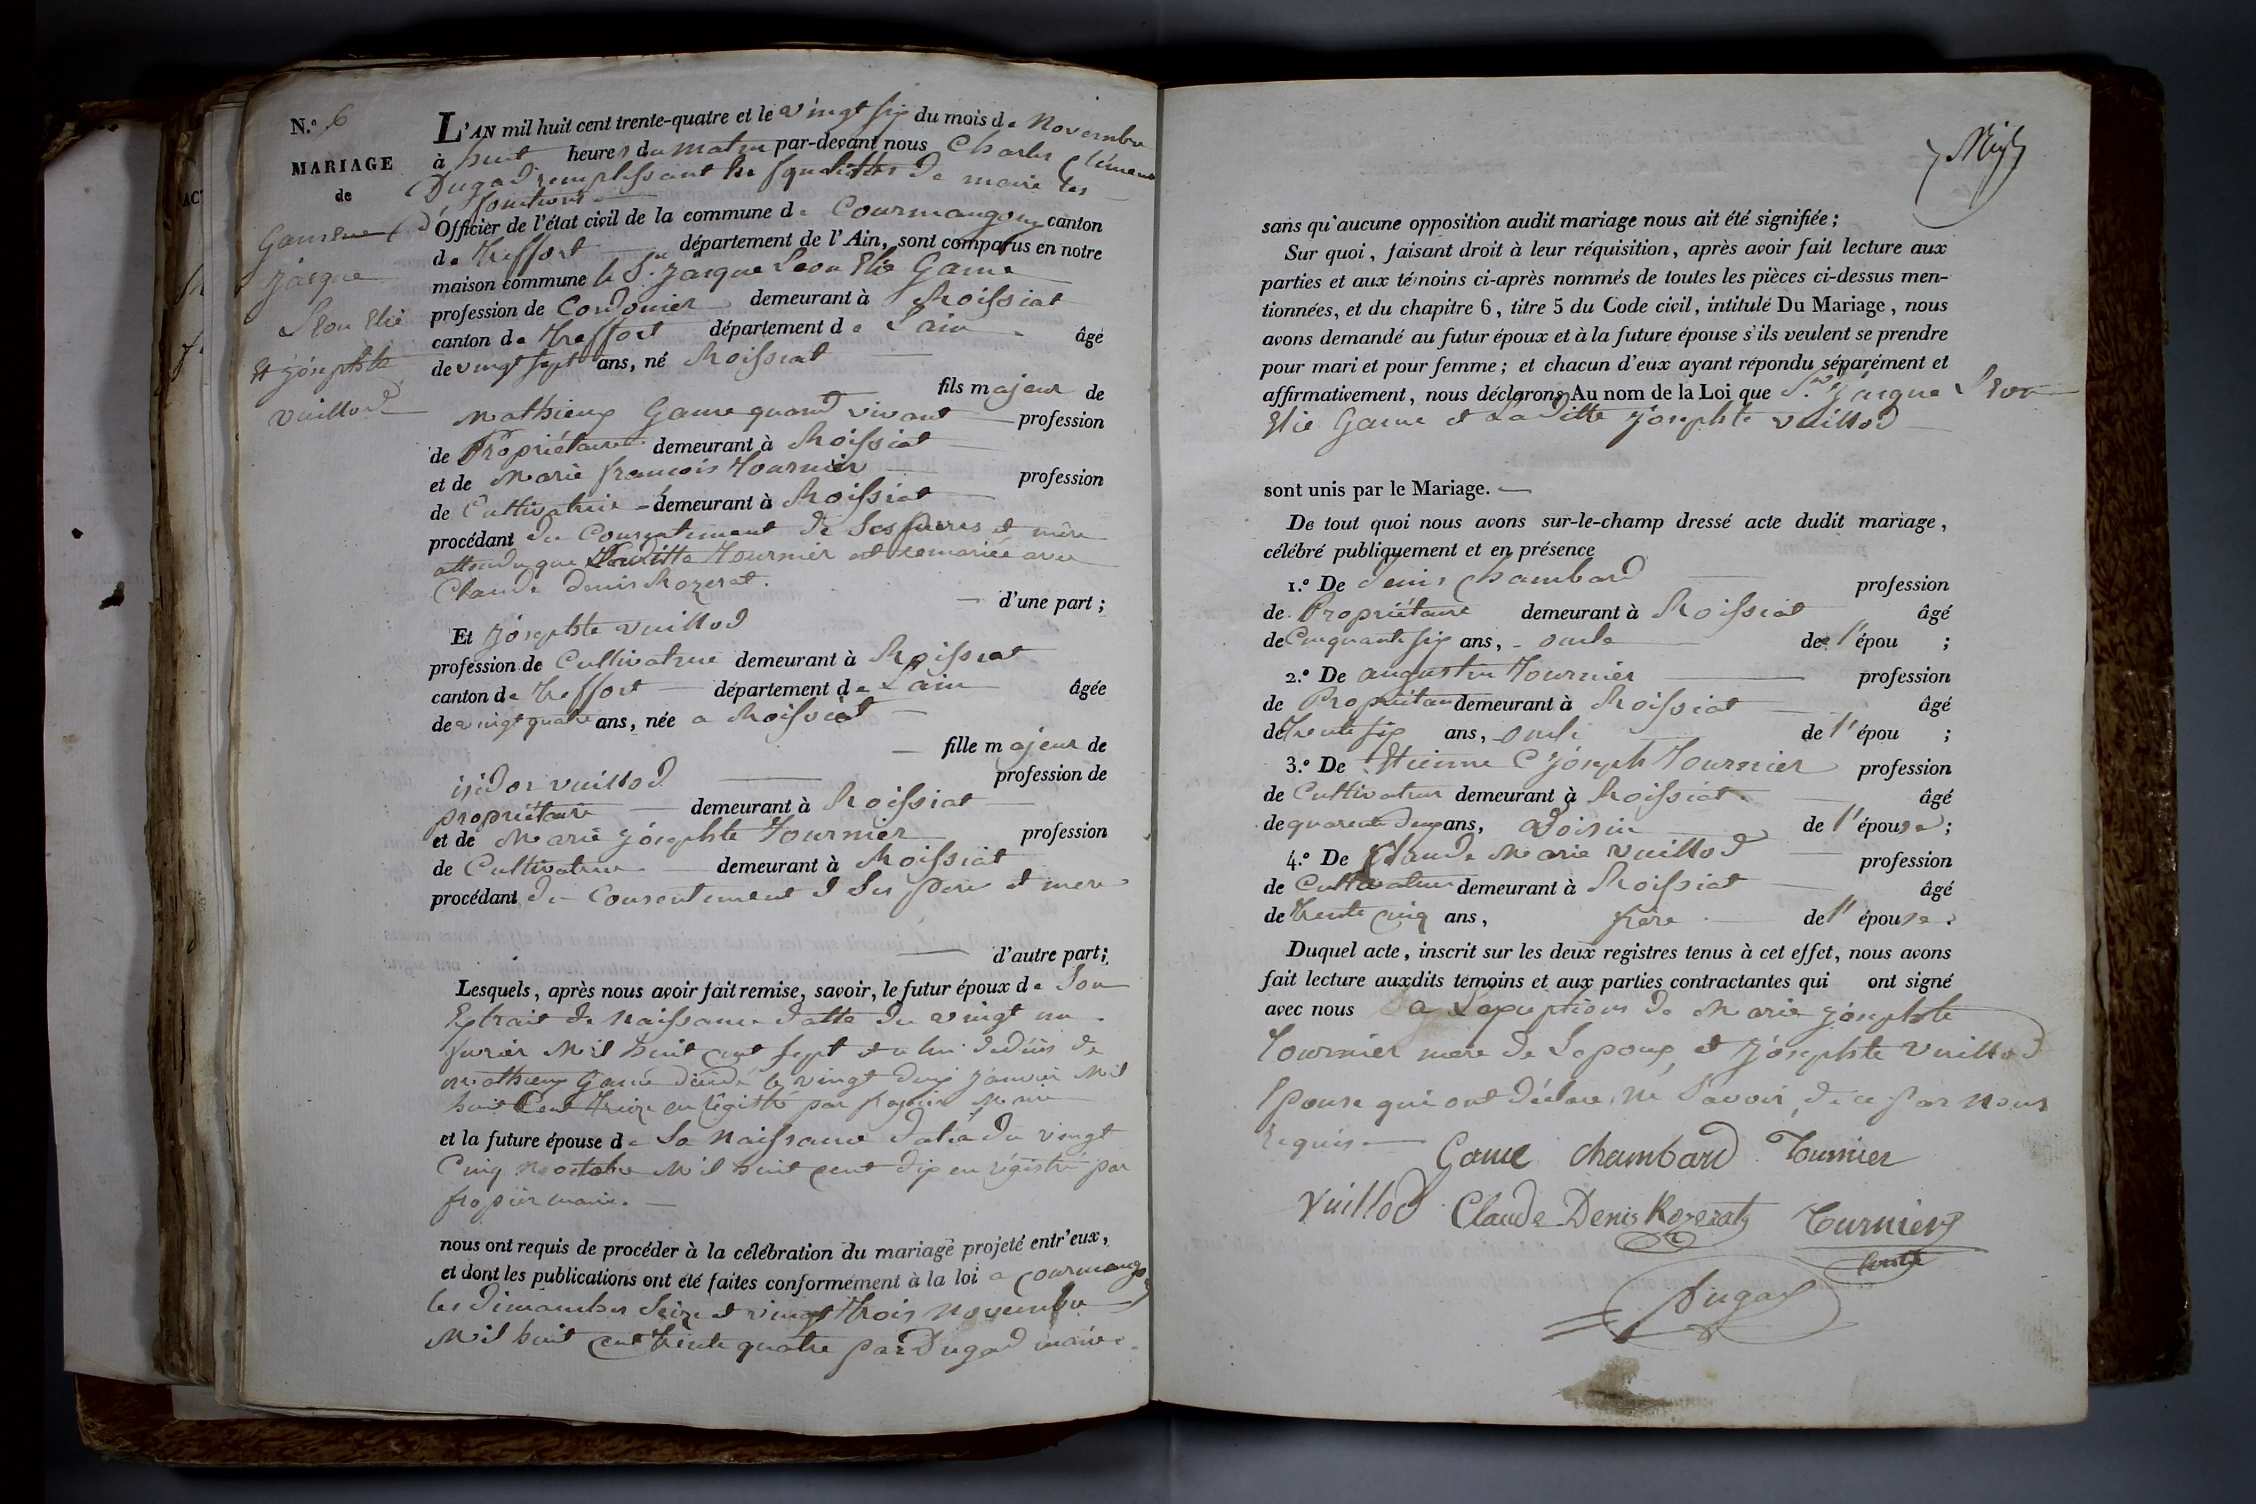 N.º 6
MARIAGE
de
Game
Jacque
Leon Elie
Et Josephte
Vuillod
L'AN mil huit cent trente-quatre et le vingt six du mois de Novembre
à huit heures du matin par-devant nous Charles Clément
Dugad remplissant les de maire les
fonctions d'
Officier de l'état civil de la commune de Courmangoux canton
de Treffort département de l'Ain, sont comparus en notre
maison commune le Sr. Jacque Leon Elie Game
profession de Cordonier demeurant à Roissiat
canton de Treffort département de Lain âgé
de vingt sept ans, né Roissiat
fils majeur de
Mathieux Game quand vivant profession
de Propriétaire demeurant à Roissiat
et de Marie françois Tournier profession
de Cultivatrice demeurant à Roissiat
procédant du Consentement de Ses et mère
attendu que Laditte Tournier est remariée avec
Claude denis Rozerat.
d'une part ;
Et Josephte vuillod
profession de Cultivatrice demeurant à Roissiat
canton de Treffort département de Lain âgée
de vingt quatre ans, née a Roissiat
fille majeur de
isidor vuillod profession de
propriétaire demeurant à Roissiat
et de Marie Josephte Tournier profession
de Cultivatrice demeurant à Roissiat
procédant du Consentement d Ses père et mere
d'autre part ;
Lesquels, après nous avoir fait remise, savoir, le futur époux de Son
Extrait de Naissance datte du vingt un
Mil huit cent sept et de
Mathieux Game le vingt deux Janvier Mil
huit Cent Treize en régistré par
et la future épouse de Sa Naissance du vingt
Cinq octobre Mil huit cent dix en régistré par
maire.
nous ont requis de procéder à la célébration du mariage projeté entr'eux,
et dont les publications ont été faites conformément à la loi a Courmangoux
les dimanches Seize et vingt trois novembre
Mil huit cent trente quatre par Dugad maire.
sans qu'aucune opposition audit mariage nous ait été signifiée ;
Sur quoi, faisant droit à leur réquisition, après avoir fait lecture aux
parties et aux témoins ci-après nommés de toutes les pièces ci-dessus men-
tionnées, et du chapitre 6, titre 5 du Code civil, intitulé Du Mariage, nous
avons demandé au futur époux et à la future épouse s'ils veulent se prendre
pour mari et pour femme ; et chacun d'eux ayant répondu séparément et
affirmativement, nous déclarons Au nom de la Loi que Jacque Leon
Elie Game et Laditte Josephte vuillod
sont unis par le Mariage.
De tout quoi nous avons sur-le-champ dressé acte dudit mariage,
célébré publiquement et en présence
1.º De denis Chambard profession
de Propriétaire demeurant à Roissiat âgé
de Cinquante six ans, oncle de l'épou ;
2.º De augustin Tournier profession
de Propriétaire demeurant à Roissiat âgé
de trente six ans, oncle de l'épou ;
3.º De Etienne Joseph Tournier profession
de Cultivateur demeurant à Roissiat âgé
de quarente deux ans, Voisin de l'épouse ;
4.º De Claude Marie vuillod profession
de Cultivateur demeurant à Roissiat âgé
de trente cinq ans, frère de l'épouse.
Duquel acte, inscrit sur les deux registres tenus à cet effet, nous avons
fait lecture auxdits témoins et aux parties contractantes qui ont signé
avec nous a Lexception de Marie Josephte
Tournier mere de Lepoux et Josephte Vuillod
Epouse qui ont déclaré Ne Savoir, de ce par Nous
Requis
Game Chambard Tournier
Vuillod Claude Denis Rozerat Tournier
Dugad